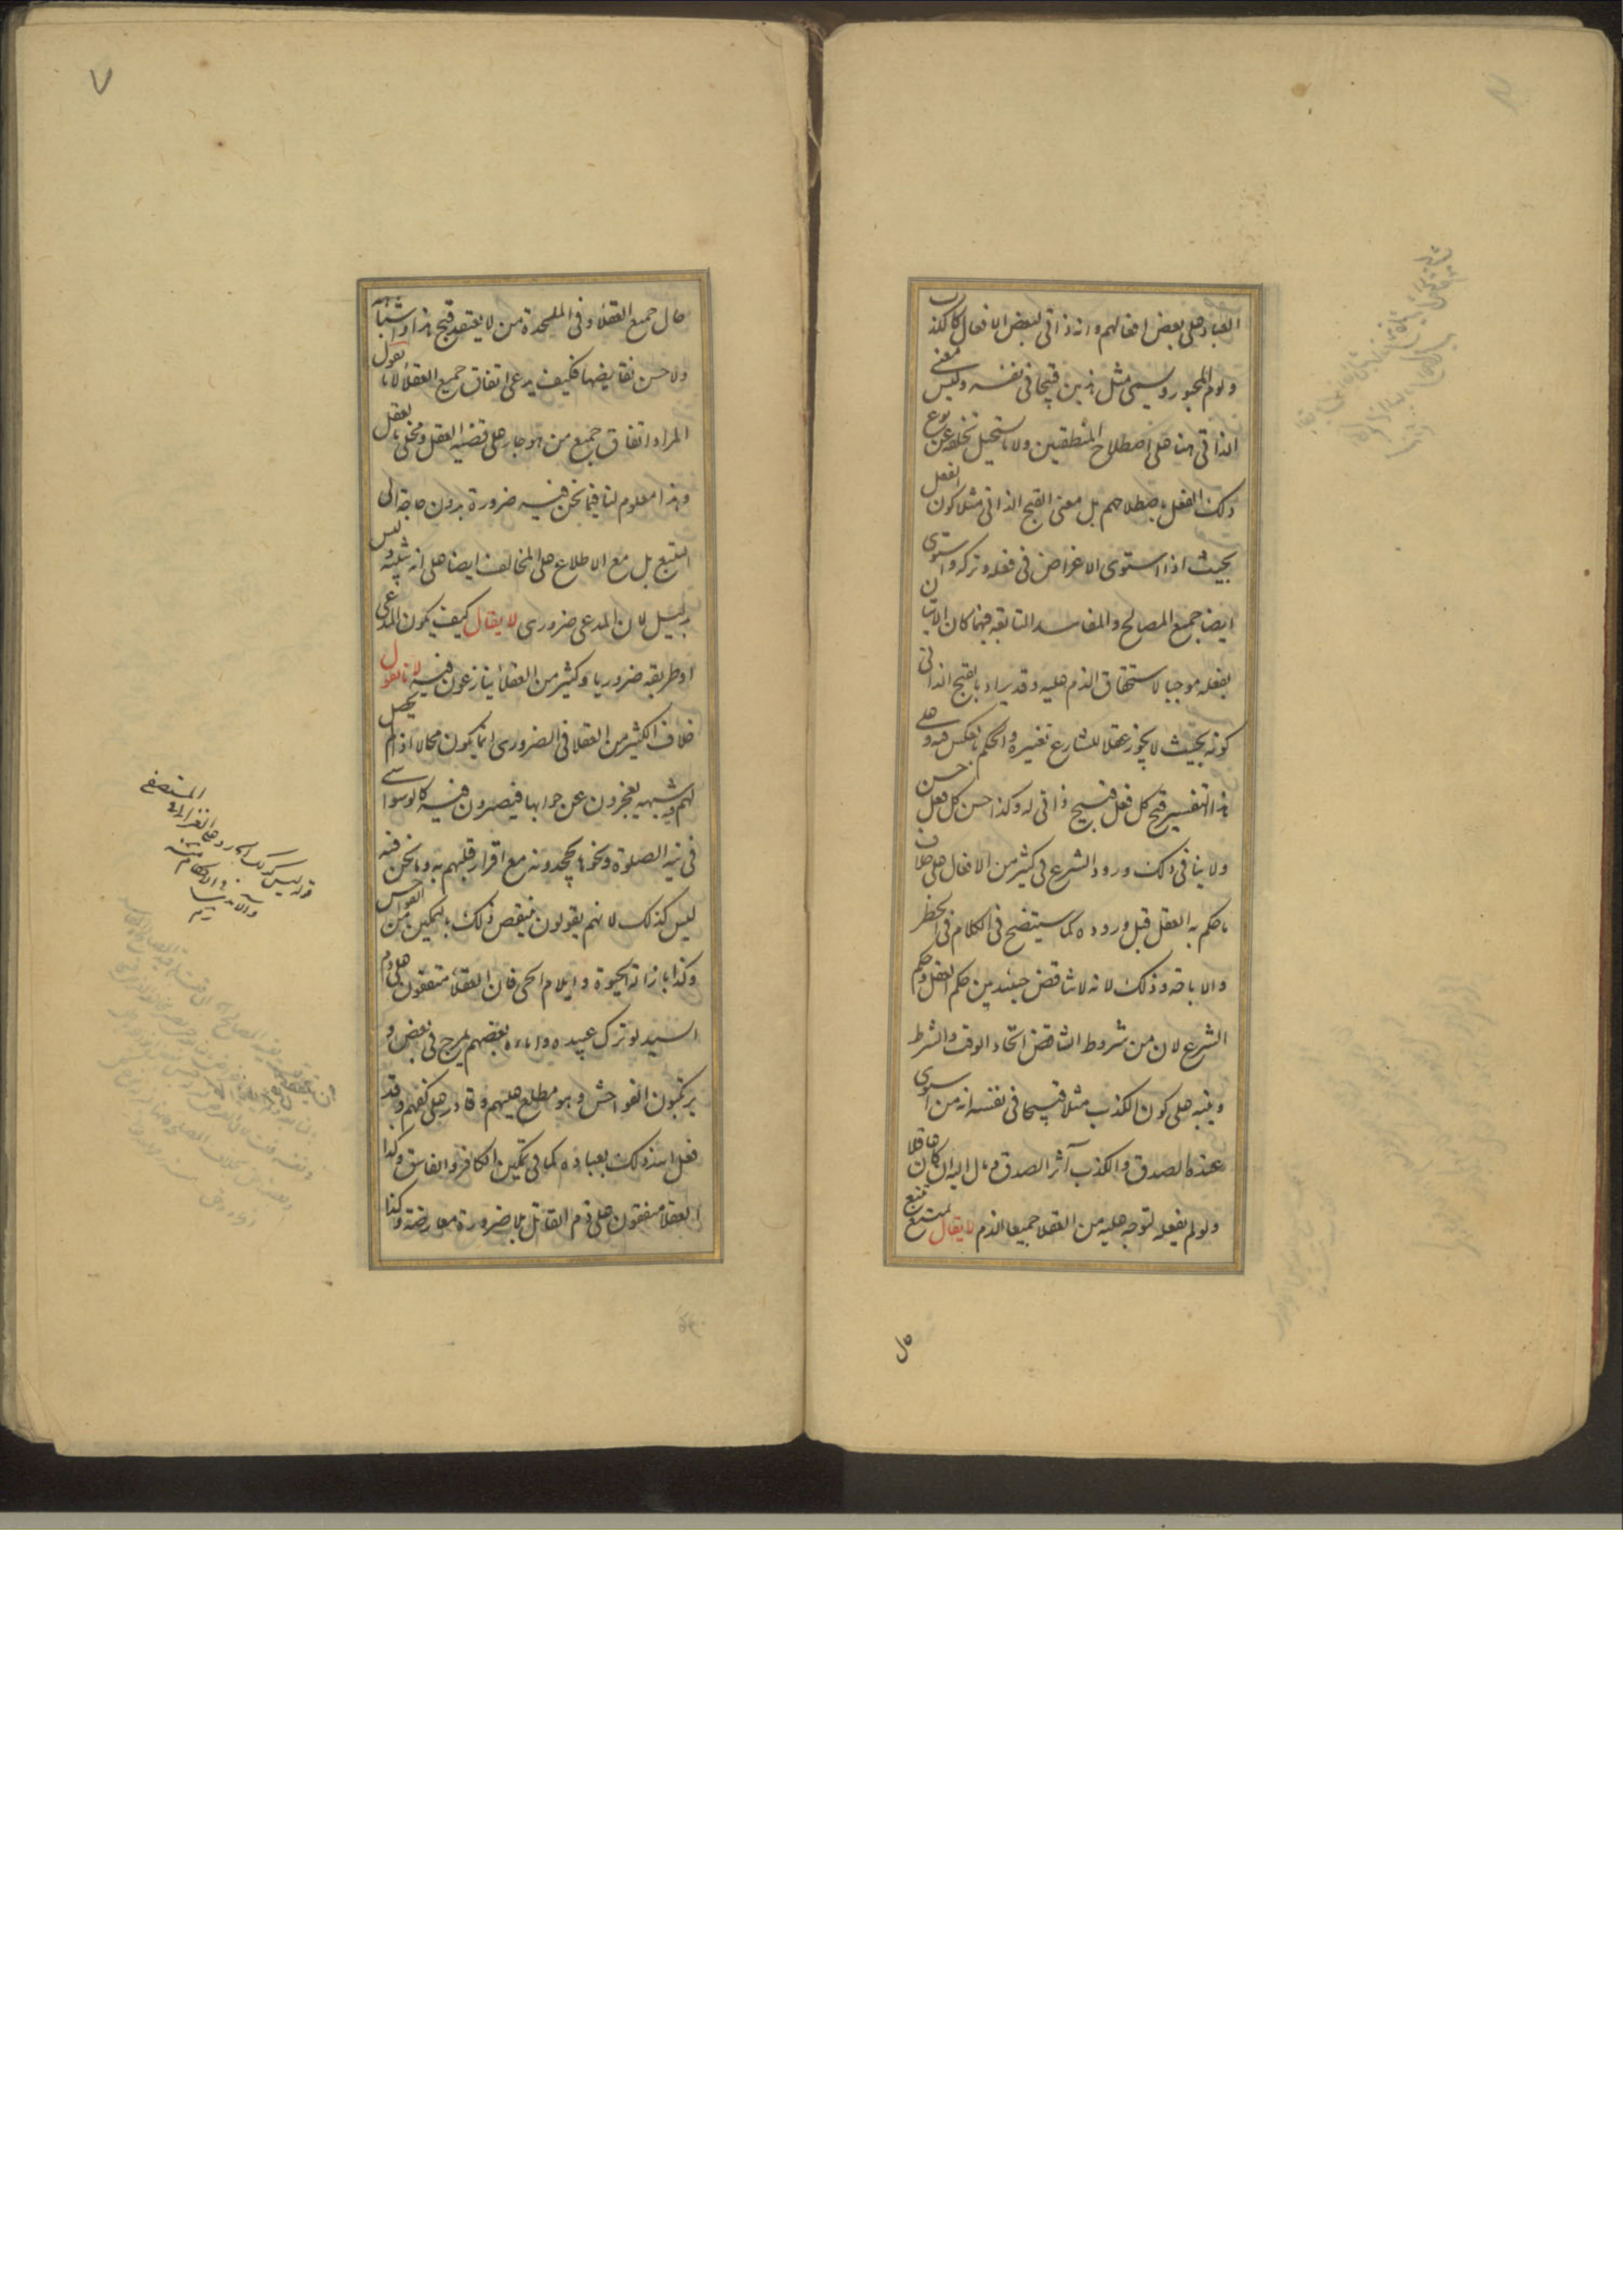 العباد على بعض افعالهم وانه ذاتى لبعض الافعال كالكذب
ولوم المجبور ويسمى مثل هذين قبيحا فى نفسه وليس معنى
الذاتى هنا على اصطلاح المنطقيين ولا ما يستحيل تخلفه عن نوع
ذلك الفعل باصطلاحهم بل معنى القبح الذاتى مثلا كون الفعل
بحيث اذا استوى الاغراض فى فعله وتركه واستوى
ايضا جميع المصالح والمفاسد السابقة فيهما كان الاتيان
بفعله موجبا لاستحقاق الذم عليه وقد يراد بالقبح الذاتى
كونه بحيث لا يجوز عقلا للشارع تغييره والحكم بالعكس فيه وعلى
هذا التفسير قبح كل فعل قبيح ذاتى له وكذا حسن كل فعل حسن
ولا ينافى ذلك ورود الشرع فى كثير من الافعال على خلاف
ما حكم به العقل قبل وروده كما سيتضح فى الكلام فى الحظر
والاباحة وذلك لانه لا تناقض حينئذ بين حكم العقل وحكم
الشرع لان من شروط التناقض اتحاد الوقت والشرط
وينبه على كون الكذب مثلا قبيحا فى نفسه انه من استوى
عنده الصدق والكذب آثر الصدق ومال اليه ان كان عاقلا
ولو لم يفعله لتوجه عليه من العقلا جميعا الذم لا يقال تتبع
حال
٧
حال جميع العقلاء وفى الملحدة من لا يعتقد قبح هذا واشباهه
ولا حسن نقايضها فكيف يدعى اتفاق جميع العقلاء لانا نقول
المراد اتفاق جميع من هو جار على قضية العقل ومخلى بالعقل
وهذا معلوم لنا فيما نحن فيه ضرورة بدون حاجة الى
التتبع بل مع الاطلاع على المخالف ايضا على انه تنبيه وليس
بدليل لان المدعى ضرورى لا يقال كيف يكون المدعى
او طريقه ضروريا وكثير من العقلاء ينازعون فيه لانا نقول
خلاف الكثير من العقلا فى الضرورى انما يكون محالا اذا لم يحصل
لهم شبهة يعجزون عن جوابها فيصرون فيه كالوسواسى
فى نية الصلوة ونحوها يجحدونه مع اقرار قلبهم به وما نحن فيه
ليس كذلك لانهم يقولون ينقض ذلك بالتمكين من الفواحش
وكذا بازالة الحيوة وايلام الحى فان العقلاء متفقون على ذم
السيد لو ترك عبيده واماءه بعضهم يمرج فى بعض و
يرتكبون الفواحش وهو مطلع عليهم وقادر على كفهم وقد
فعل الله ذلك بعباده كما فى تمكين الكافر والفاسق وكذا
العقلا متفقون على ذم القاتل بلا ضرورة معارضة وكذا
قوله ليس كذلك